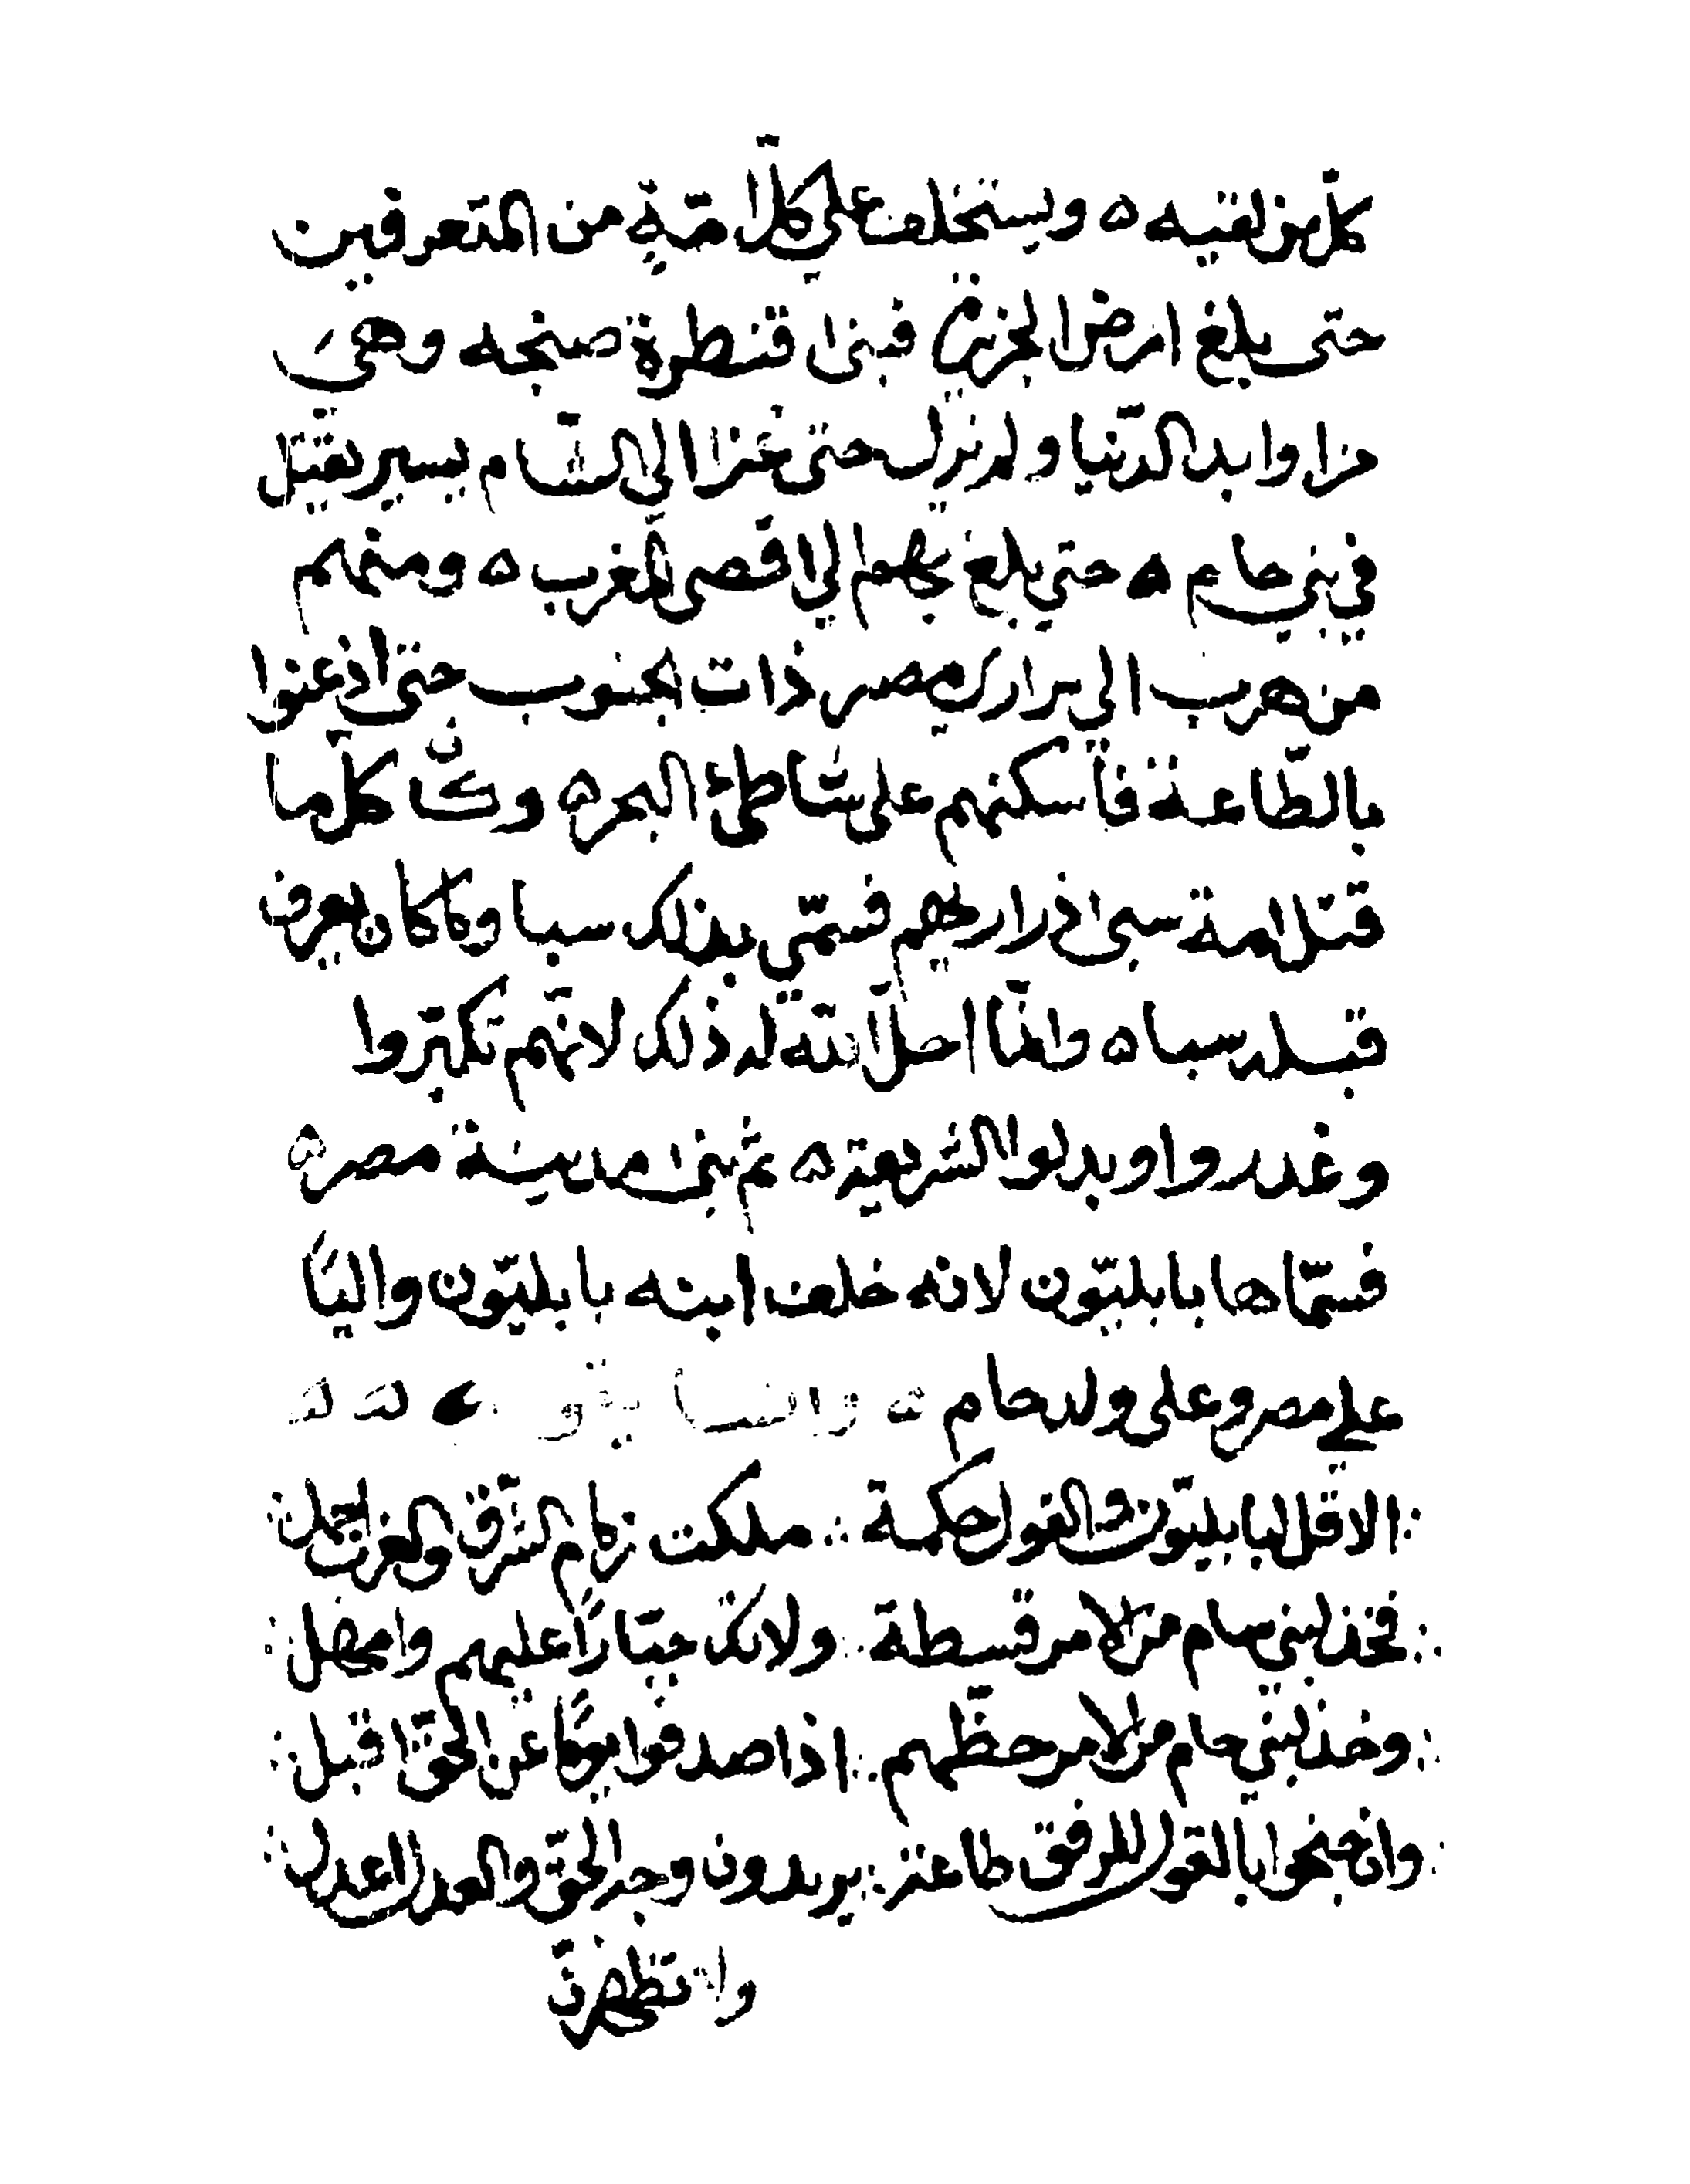 كلّ من لقيه ه ويستخلف على كلّ امّةٍ من المتعرفين
حتى بلغ ارض الجزيرة فبنى قنطرة صنجه وهي
من اوابد الدّنيا ولم يزل حتى غزا الى الشّام يسير يقتل
في بني حام ه حتى بلغ بهم الى اقصى المغرب ه ومنهم
من هرب الى براري مصر ذات الجنوب حتى اذعنوا
بالطّاعة فأسكنهم على شاطئ البحر ه وكان كلّما
قتل امة سبى ذراريهم فسمّي بذلك سبا وكان يعرف
قبله سبا ه وانما احلّ الله له ذلك لانهم تكبّروا
وغدروا وبدلوا الشريعة ه ثم بنى مدينة مصر ه
فسمّاها بابليّون لانه خلف ابنه بابليّون واليًا
على مصر وعلى ولد حام ه
الا قل لبابليّون والقول حكمة ملكت زمام الشّرق والغرب
فخذ لبني سام من الامر قسطة ولا تك جبّارًا عليهم وامهل
وخذ لبني حام من الامر حظّهم اذا صدفوا يومًا عن الحقّ اقبل
وان جنحوا بالقول للرفق طاعة يريدون وجه الحقّ والعدل اعدل
ولا تظهرنّ